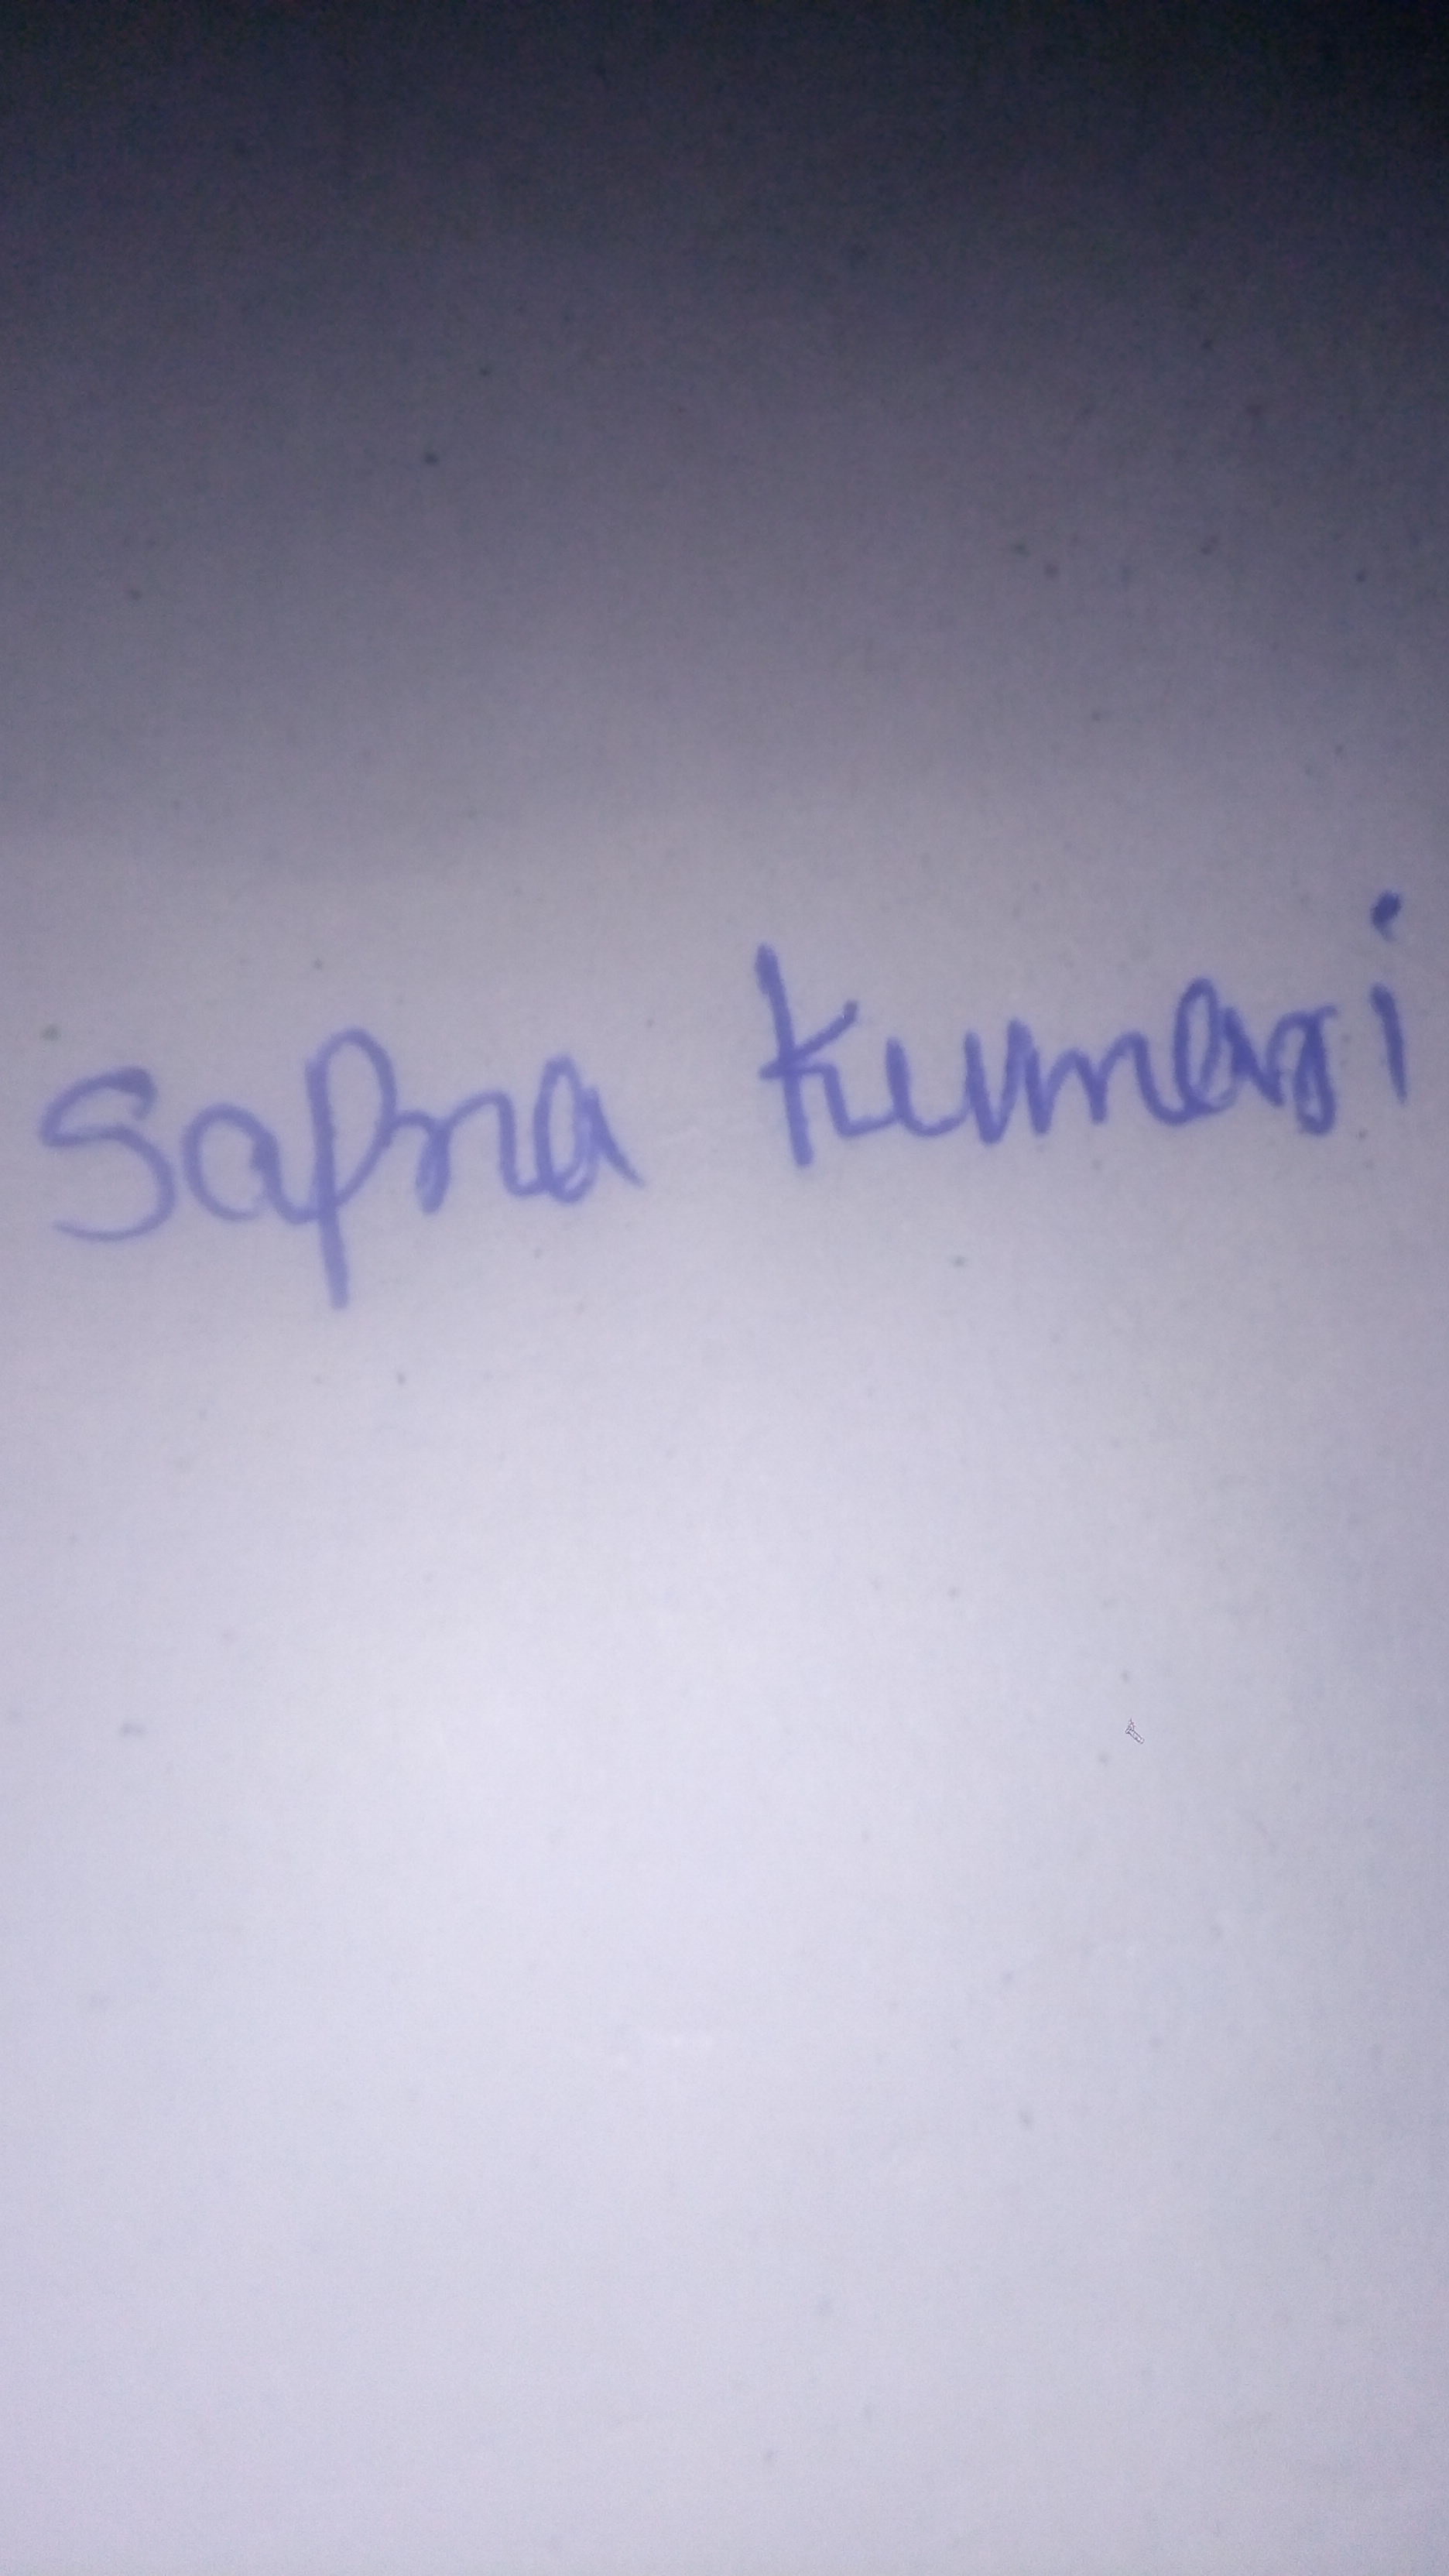 Sapna kumari